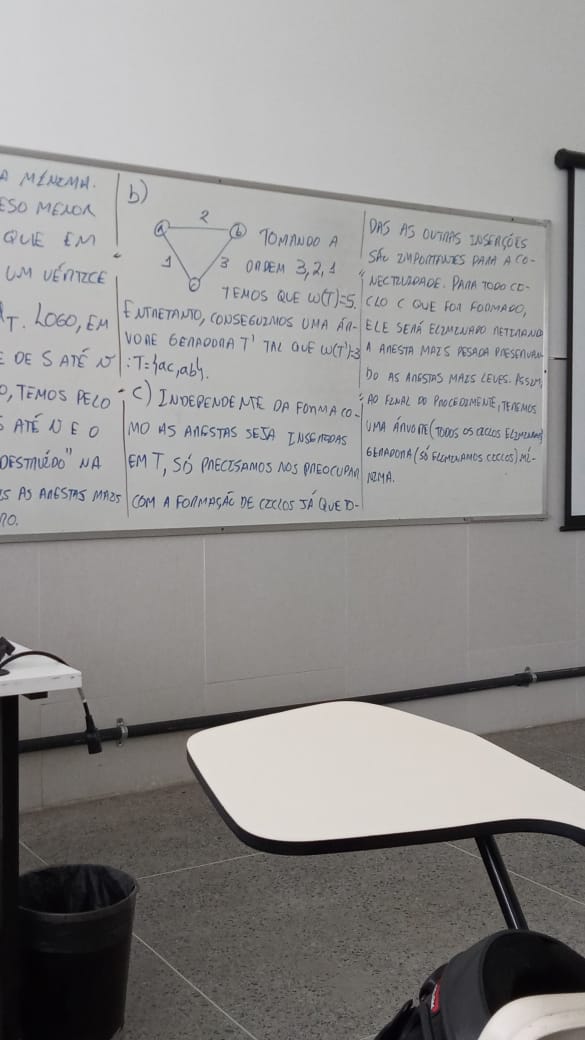 A MÍNIMA.
ESO MENOR
QUE EM
UM VÉRTICE
T. LOGO, EM
E DE S ATÉ N
O, TEMOS PELO
S ATÉ N E O
DESTRUÍDO" NA
IS AS ARESTAS MAIS
RO.
b)
a 2 b
1 3
c
TOMANDO A
ORDEM 3,2,1
TEMOS QUE W(T)=5.
ENTRETANTO, CONSEGUIMOS UMA ÁR-
VORE GERADORA T' TAL QUE W(T')=3
:T={ac,ab}.
C) INDEPENDENTE DA FORMA CO-
MO AS ARESTAS SEJA INSERIDAS
EM T, SÓ PRECISAMOS NOS PREOCUPAR
COM A FORMAÇÃO DE CICLOS JÁ QUE TO-
DAS AS OUTRAS INSERÇÕES
SÃO IMPORTANTES PARA A CO-
NECTIVIDADE. PARA TODO CI-
CLO C QUE FOR FORMADO,
ELE SERÁ ELIMINADO RETIRANDO
A ARESTA MAIS PESADA PRESERVAN-
DO AS ARESTAS MAIS LEVES. ASSIM,
AO FINAL DO PROCEDIMENTO, TEREMOS
UMA ÁRVORE (TODOS OS CICLOS ELIMINADOS)
GERADORA (SÓ ELIMINAMOS CICLOS) MÍ-
NIMA.